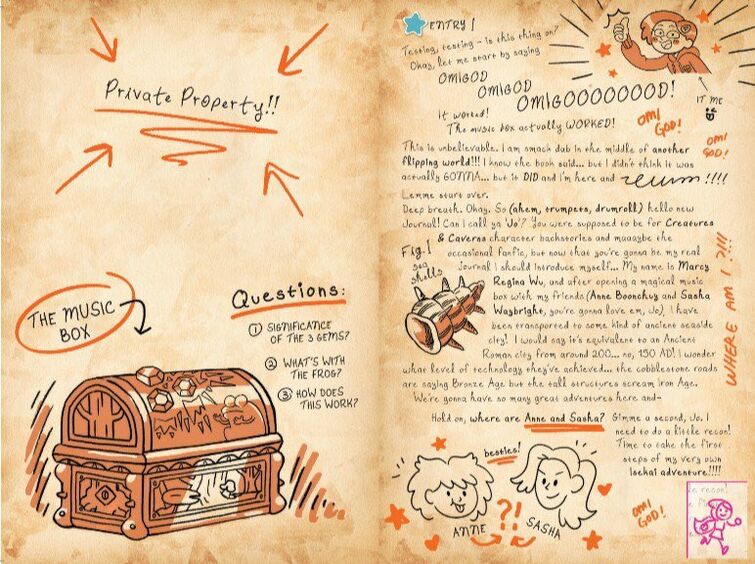 Private Property!!
THE MUSIC
BOX
Questions:
① SIGNIFICANCE
OF THE 3 GEMS?
② WHAT'S WITH
THE FROG?
③ HOW DOES
THIS WORK?
ENTRY 1
Testing, testing - is this thing on?
Okay, let me start by saying
OMIGOD
OMIGOD
OMIGOOOOOOOD!
IT ME
It worked!
The music box actually WORKED!
OMI
GOD!
OMI
GOD!
This is unbelievable. I am smack dab in the middle of another
flipping world!!! I know the book said... but I didn't think it was
actually GONNA... but it DID and I'm here and !!!!
Lemme start over.
Deep breath. Okay. So (ahem, trumpets, drumroll) hello new
Journal! Can I call ya 'Jo'? You were supposed to be for Creatures
& Caverns character backstories and maaaybe the
occasional fanfic, but now that you're gonna be my real
journal I should introduce myself... My name is Marcy
Regina Wu, and after opening a magical music
box with my friends (Anne Boonchuy and Sasha
Waybright, you're gonna love em, Jo), I have
been transported to some kind of ancient seaside
city! I would say it's equivalent to an Ancient
Roman city from around 200... no, 150 AD! I wonder
what level of technology they've achieved... the cobblestone roads
are saying Bronze Age but the tall structures scream Iron Age.
We're gonna have so many great adventures here and-
Fig.1
sea
shells
WHERE AM I ?!!!
Hold on, where are Anne and Sasha? Gimme a second, Jo. I
need to do a little recon!
Time to take the first
steps of my very own
Isekai adventure!!!!
besties!
?!
ANNE
SASHA
OMI
GOD!
e recon!